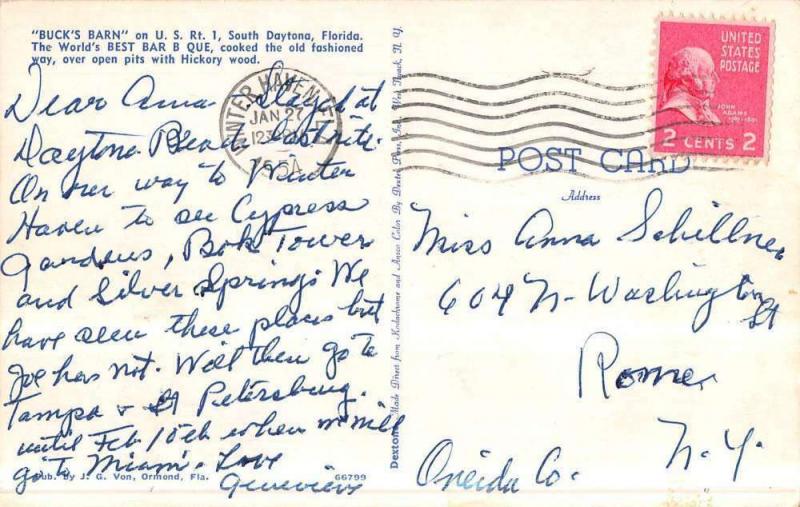 "BUCK'S BARN" on U. S. Rt. 1, South Daytona, Florida.
The World's BEST BAR B QUE, cooked the old fashioned
way, over open pits with Hickory wood.
Dear Anna- Stayed at
Daytona Beach last nite.
On our way to Winter
Haven to see Cypress
Gardens, Bok Tower
and Silver Springs. We
have seen these places but
Joe has not. Will then go to
Tampa & St Petersburg.
until Feb 10th when we will
go to Miami. Love
Genevieve
Pub. by J. G. Von, Ormond, Fla. 66799
WINTER HAVEN
JAN 27
UNITED
STATES
POSTAGE
JOHN
ADAMS
2 CENTS 2
POST CARD
Address
Miss Anna Schillner
604 N. Washington
St
Rome
N. Y.
Oneida Co.
Made Direct from Kodachrome and Ansco Color By Dexter Press, Inc., West Nyack, N. Y.